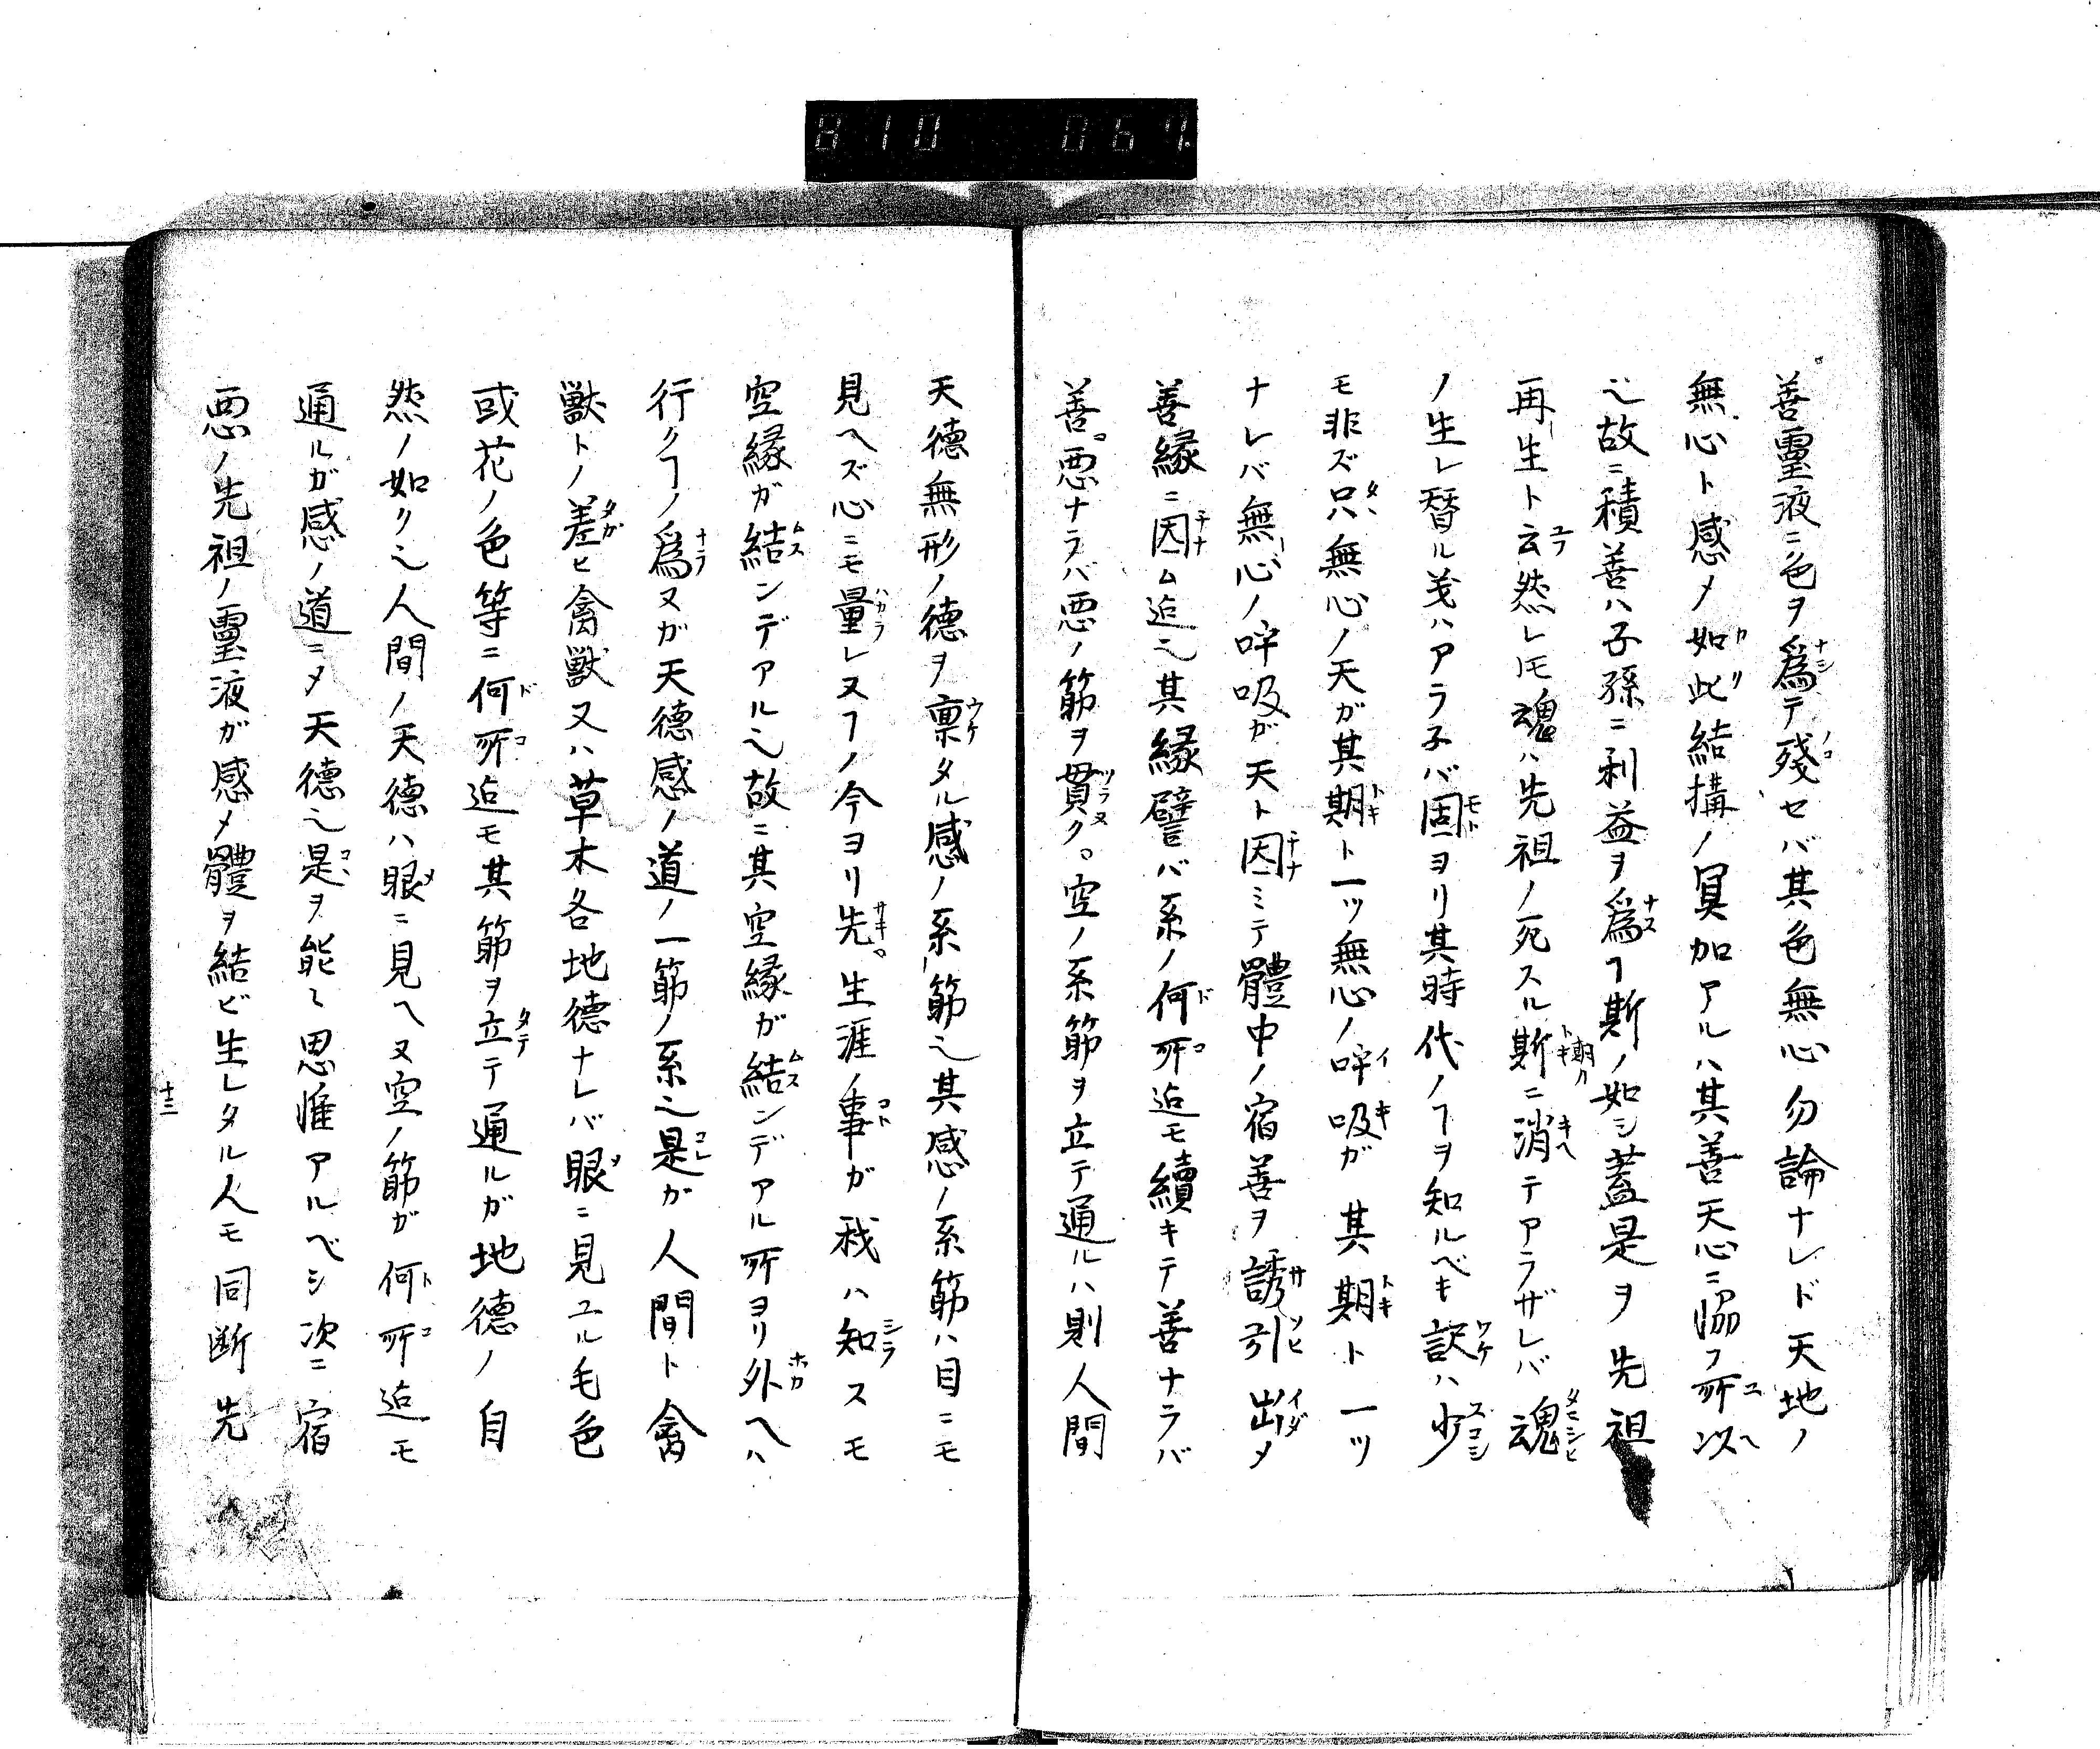 810 067
善靈液ニ色ヲ爲テ殘セバ其色無心勿論ナレド天地ノ
無心ト感〆如此結搆ノ冥加アルハ其善天心ニ恊フ所以
也故ニ積善ハ子孫ニ利益ヲ爲ヿ斯ノ如シ蓋是ヲ先祖
再生ト云然レ𪜈魂ハ先祖ノ死スル斯ニ消テアラザレバ魂
ノ生レ替ル茂ハアラ子バ固ヨリ其時代ノヿヲ知ルベキ訳ハ少
モ非ズ只無心ノ天ガ其期ト一ッ無心ノ呼吸ガ其期ト一ッ
ナレバ無心ノ呼吸ガ天ト因ミテ體中ノ宿善ヲ誘引出〆
善縁ニ因ム迠也其縁譬バ系ノ何所迠モ續キテ善ナラバ
善。悪ナラバ悪ノ筋ヲ貫ク。空ノ系筋ヲ立テ通ルハ則人間
天德無形ノ德ヲ稟タル感ノ系筋也其感ノ系筋ハ目ニモ
見ヘズ心ニモ量レヌヿノ今ヨリ先。生涯ノ事ガ我ハ知スモ
空縁ガ結ンデアル也故ニ其空縁ガ結ンデアル所ヨリ外ヘハ
行クヿノ爲ヌガ天德感ノ道ノ一筋ノ系也是ガ人間ト禽
獣トノ差ヒ禽獣又ハ草木各地德ナレバ眼ニ見ユル毛色
或花ノ色等ニ何所迠モ其筋ヲ立テ通ルガ地德ノ自
然ノ如ク也人間ノ天德ハ眼ニ見ヘヌ空ノ筋ガ何所迠モ
通ルガ感ノ道ニ〆天德也是ヲ能々思惟アルベシ次ニ宿
悪ノ先祖ノ靈液ガ感〆體ヲ結ビ生レタル人モ同断先
十三